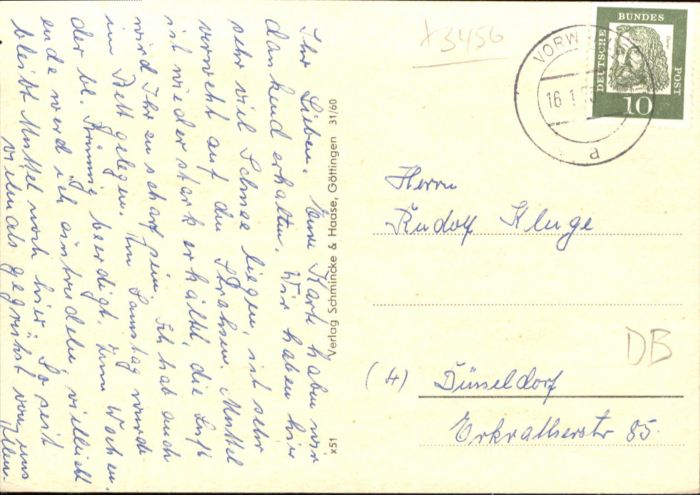 Ihr Lieben. Eure Karte haben wir
dankend erhalten. Wir haben hier
sehr viel Schnee liegen, ist sehr
verweht auf den Strahsen. Muttel
ist wieder stark erkältet, die Luft
wird Ihr zu scharf sein. Ich hab auch
im Bett gelegen. Am Samstag wurde
der beerdigt. Zum Wochen
ende werd ich eintrudeln, vielleicht
bleibt Muttel noch hier. So seit
vielmals gegrühst von uns
Allen
Verlag Schmincke & Haase, Göttingen 31/60
x51
x3456
VORW
16.1
a
DEUTSCHE
BUNDES
POST
10
Herrn
Rudolf Kluge
DB
(4) Düsseldorf
Erkratherstr 85.